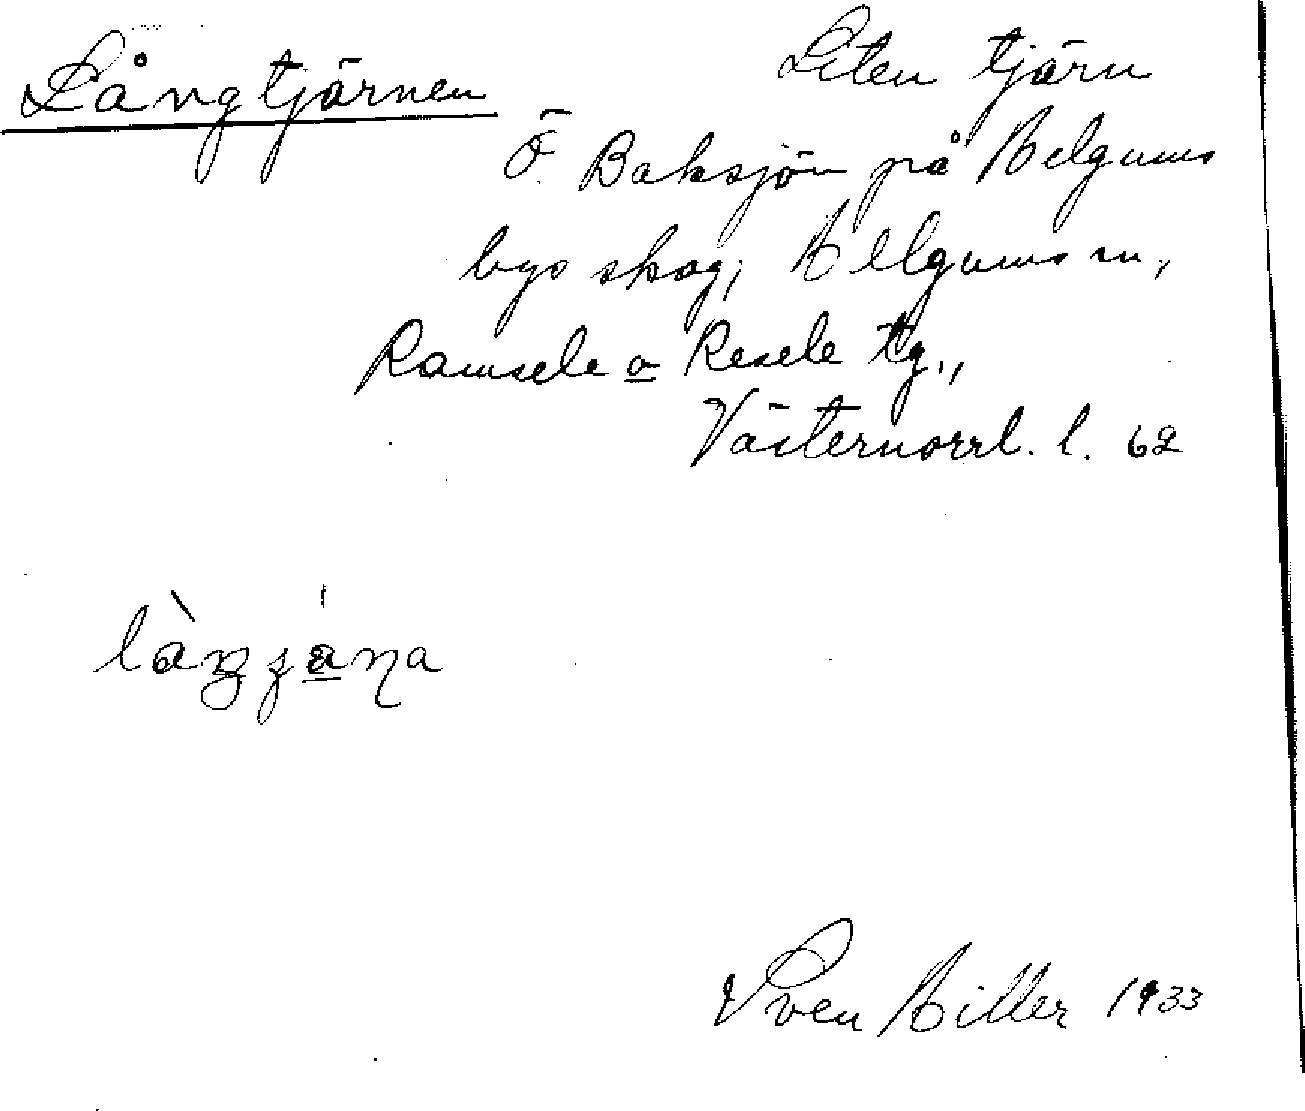 Långtjärnen
Liten tjärn
Ö. Baksjön på Helgums
bys skog, Helgums sn,
Ramsele o Resele tg.,
Västernorrl. l. 62
Sven Hiller 1933